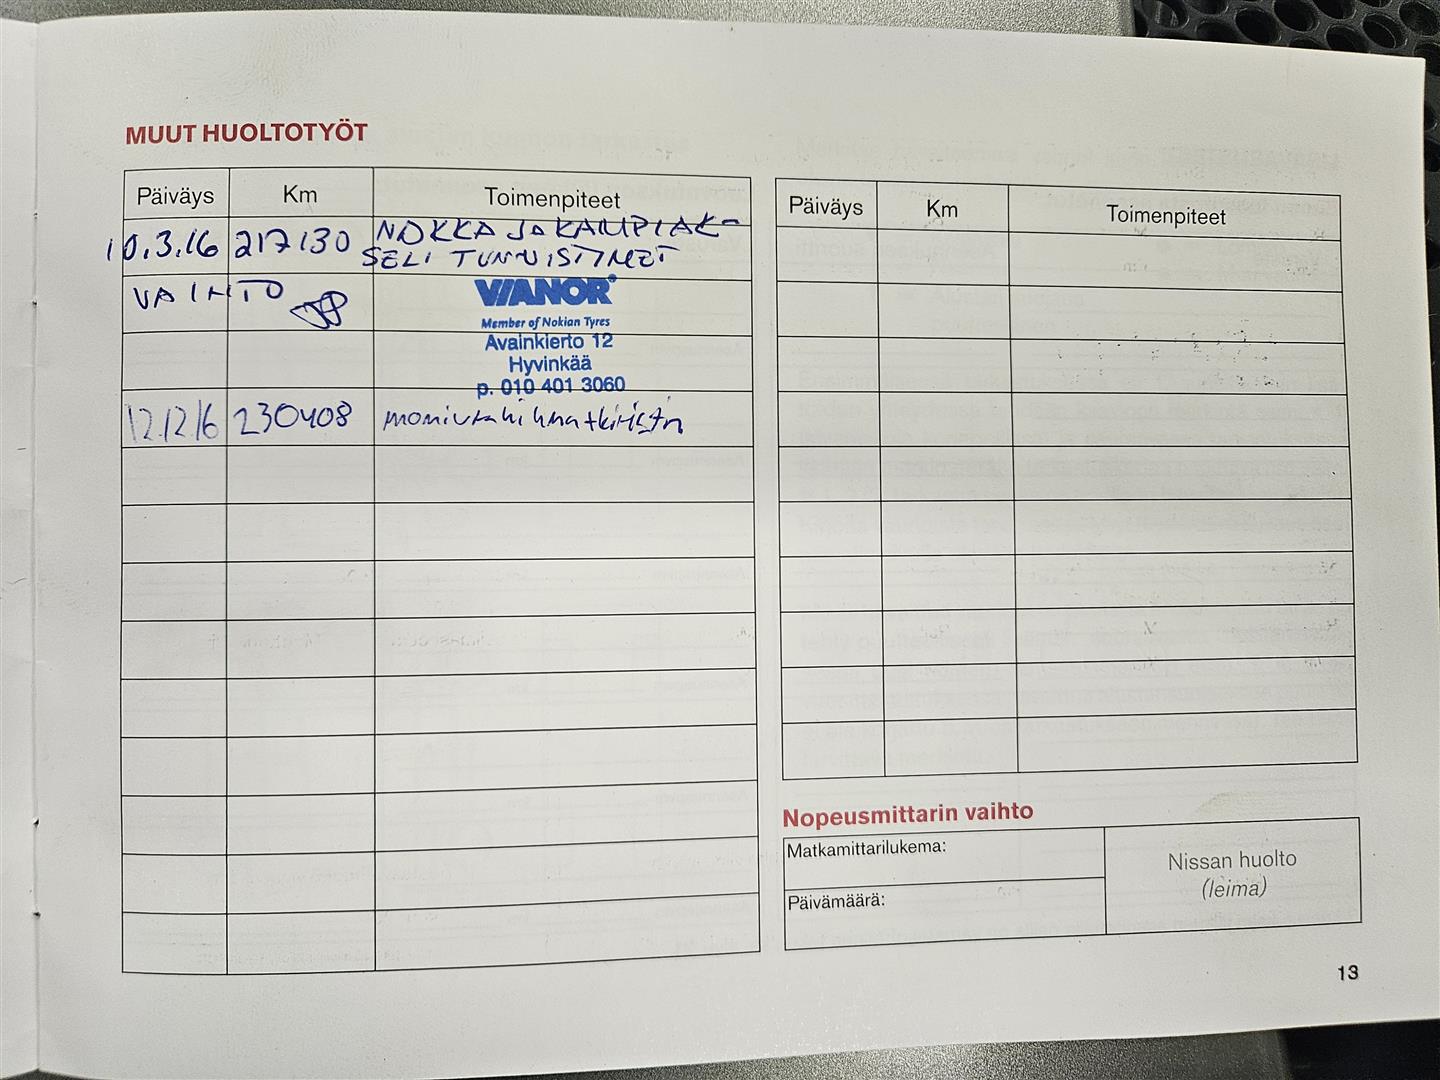 MUUT HUOLTOTYÖT
Päiväys Km Toimenpiteet
10.3.16 217130 NOKKA JA KAMPIAK-
SELI TUNNISTIMET
VAIHTO
VIANOR®
Member of Nokian Tyres
Avainkierto 12
Hyvinkää
p. 010 401 3060
12.12.16 230408 moniurahihnatkiristin
Päiväys Km Toimenpiteet
Nopeusmittarin vaihto
Matkamittarilukema:
Päivämäärä:
Nissan huolto
(leima)
13